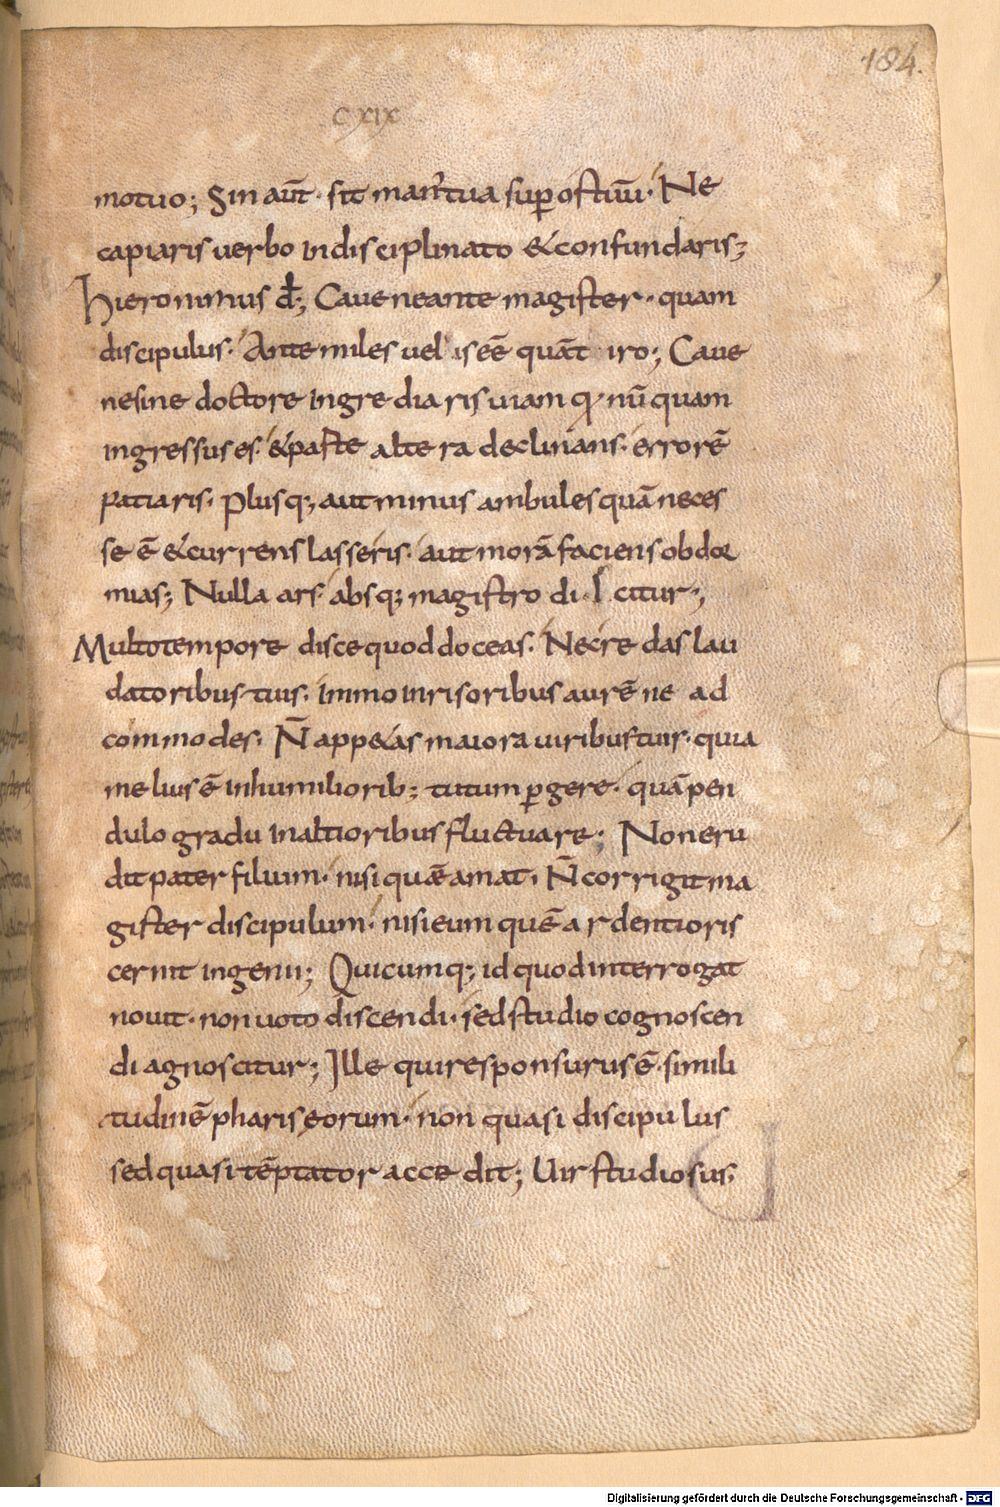 184.
CXIX
motuo; Sin aūt · sit man᷑ tua sup os tuū · Ne
capiaris verbo indisciplinato & confundaris;
Hieronimus đ; Caue ne ante magister · quam
discipulus · Ante miles uel is eē̄ quāt iro; Caue
ne sine doctore ingrediaris uiam q · nū quam
ingressus es · & paste altera declinans · errorē
patiaris · plusq; aut minus ambules quā neces
se ē & currens lasseris · aut morā faciens obdor
mias; Nulla ars absq; magistro di l citur;
Multo tempore disce quod doceas · Ne credas lau
datoribus tuis · immo inrisoribus aurē ne ad
commodes · N̄ app&as maiora uiribus tuis · quia
melius ē in humilioribus; tutum pgere · quā pen
dulo gradu in altioribus fluctuare; Non eru
dit pater filium · nisi quē amat · N̄ corrigit ma
gister discipulum · nisi eum quē ardentioris
cernit ingenii; Quicumq; id quod interrogat
nouit · non uoto discendi · sed studio cognoscen
di agnoscitur; Ille qui responsurus ē · simili
tudinē phariseorum · non quasi discipulus
sed quasi tēptator accedit; Uir studiosus
U
Digitalisierung gefördert durch die Deutsche Forschungsgemeinschaft - DFG